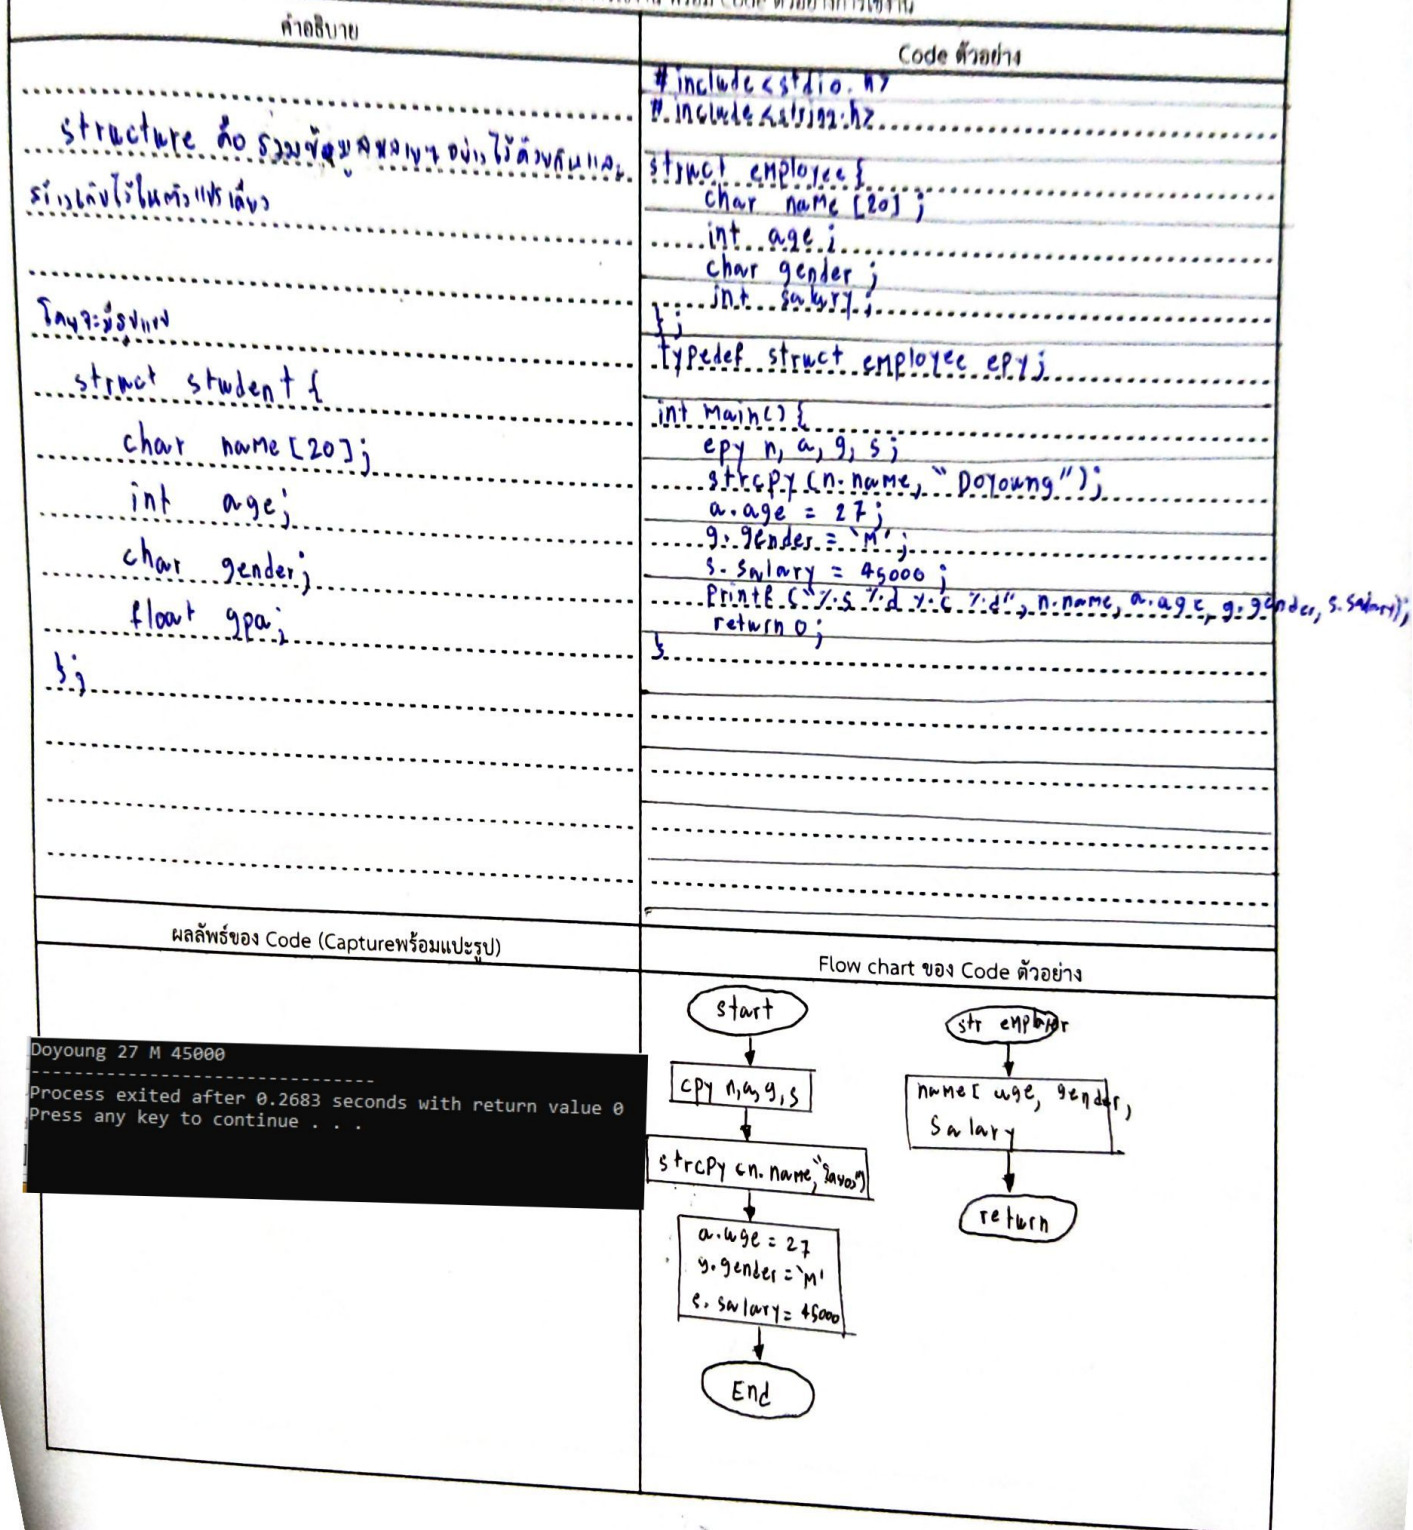 พร้อม Code ตัวอย่างการใช้งาน
คำอธิบาย
structure คือ รวมข้อมูลหลายๆ อย่างไว้ด้วยกันและ
ไว้ในตัวแปรเดียว
โดยจะมีรูปแบบ
struct student {
char name [20];
int age;
char gender;
float gpa;
};
Code ตัวอย่าง
#include<stdio.h>
#include<string.h>
struct employee {
char name [20] ;
int age ;
char gender ;
int salary ;
} ;
typedef struct employee epy ;
int main() {
epy n, a, g, s ;
strcpy (n.name, "Doyoung") ;
a.age = 27 ;
g.gender = 'M' ;
s.salary = 45000 ;
printf ("%s %d %c %d", n.name, a.age, g.gender, s.salary);
return 0 ;
}
ผลลัพธ์ของ Code (Captureพร้อมแปะรูป)
Doyoung 27 M 45000
--------------------------------
Process exited after 0.2683 seconds with return value 0
Press any key to continue . . .
Flow chart ของ Code ตัวอย่าง
start
cpy n,a,g,s
strcpy (n.name,
a.age = 27
g.gender = 'M'
s.salary = 45000
End
str
name[ age, gender,
Salary
return